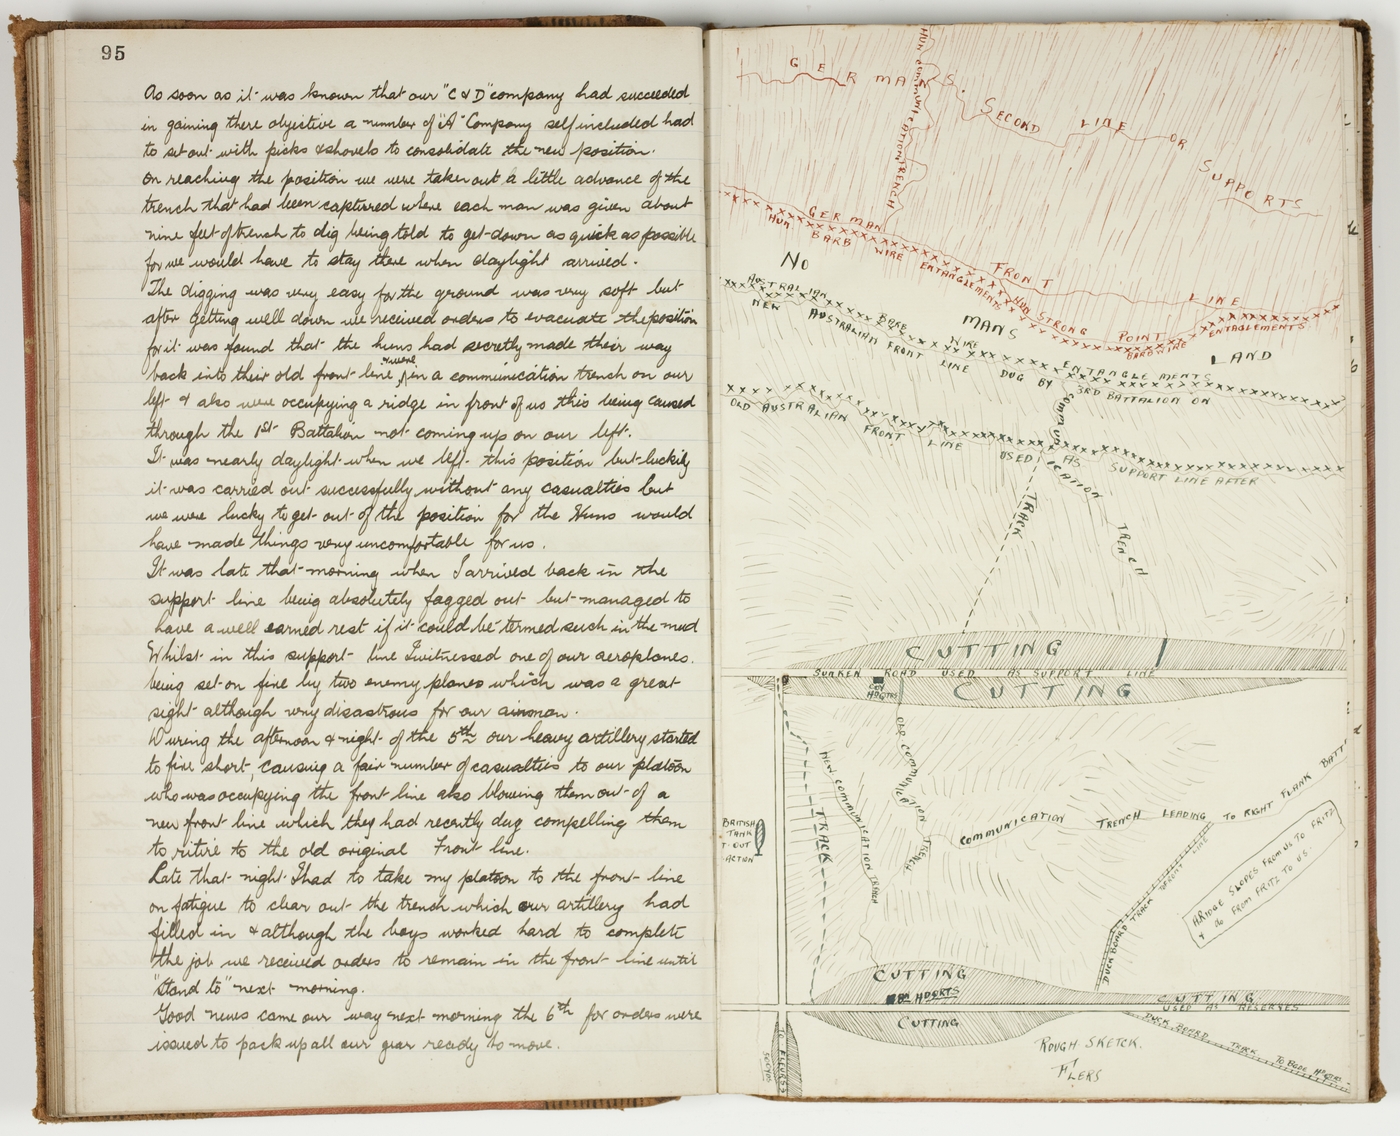 95
As soon as it was known that our "C & D" company had succeeded
in gaining there objective a number of "A" Company self included had
to set out with picks & shovels to consolidate the new position.
On reaching the position we were taken out a little advance of the
trench that had been captured where each man was given about
nine feet of trench to dig being told to get down as quick as possible
for we would have to stay there when daylight arrived.
The digging was very easy for the ground was very soft but
after getting well down we received orders to evacuate the position
for it was found that the huns had secretly made their way
back into their old front line, & were in a communication trench on our
left & also were occupying a ridge in front of us this being caused
through the 1st Battalion not coming up on our left.
It was nearly daylight when we left this position but luckily
it was carried out successfully without any casualties but
we were lucky to get out of the position for the Huns would
have made things very uncomfortable for us.
It was late that morning when I arrived back in the
support line being absolutely fagged out but managed to
have a well earned rest if it could be termed such in the mud
Whilst in this support line I witnessed one of our aeroplanes.
being set on fire by two enemy planes which was a great
sight although very disastrous for our airman.
During the afternoon & night of the 5th our heavy artillery started
to fire short, causing a fair number of casualties to our platoon
who was occupying the front line also blowing them out of a
new front line which they had recently dug compelling them
to ritire to the old original Front line.
Late that night I had to take my platoon to the front line
on fatigue to clear out the trench which our artillery had
filled in & although the boys worked hard to complete
the job we received orders to remain in the front line until
"Stand to" next morning.
Good news came our way next morning the 6th for orders were
issued to pack up all our gear ready to move.
GERMANS. SECOND LINE OR SUPPORTS
HUN COMMUNICATION TRENCH
GERMAN FRONT LINE
HUN BARB WIRE ENTANGLEMENTS
HUN STRONG POINT
BARB WIRE ENTAGLEMENTS
NO MANS LAND
AUSTRALIAN BARB WIRE ENTANGLEMENTS
NEW AUSTRALIAN FRONT LINE DUG BY 3RD BATTALION ON
OLD AUSTRALIAN FRONT LINE USED AS SUPPORT LINE AFTER
COMMUNICATION TRENCH
TRACK
CUTTING
SUNKEN ROAD USED AS SUPPORT LINE
COY HDQTRS
CUTTING
OLD COMMUNICATION TRENCH
NEW COMMUNICATION TRENCH
TRACK
BRITISH
TANK
T-OUT
ACTION
COMMUNICATION TRENCH LEADING TO RIGHT FLANK BATT
DUCK BOARD TRACK TO FRONT LINE
A RIDGE SLOPES FROM US TO FRITZ
& DO FROM FRITZ TO US.
CUTTING
BN HDQRTS
CUTTING
CUTTING
USED AS RESERVES
DUCK BOARD TRACK TO BGDE HDQTRS
TO FLERS
ROUGH SKETCK.
AT
FLERS